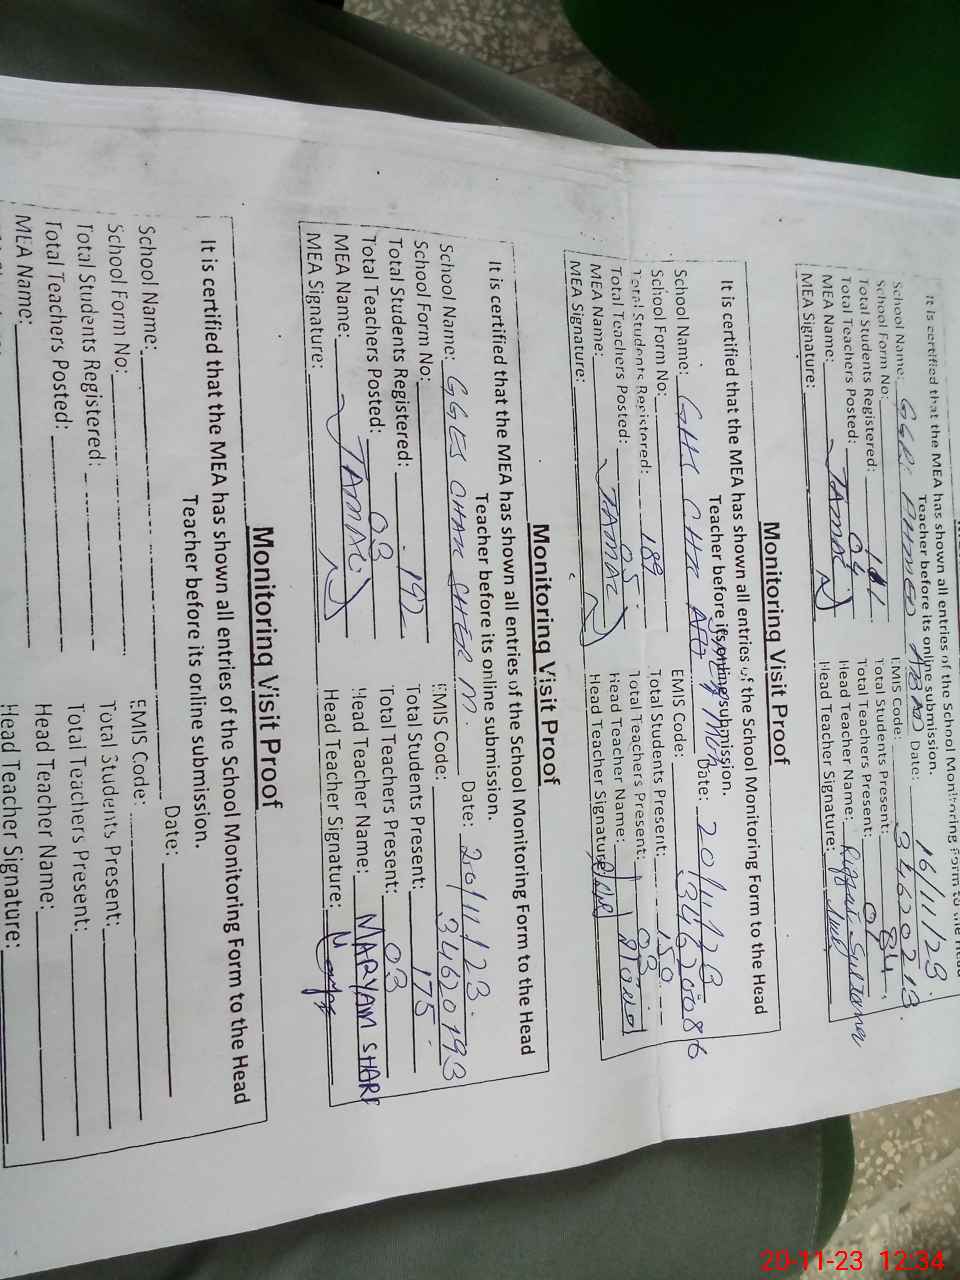 It is certified that the MEA has shown all entries of the School Monitoring Form to the Head
Teacher before its online submission.
School Name: AHMED ABAD Date: 16/11/23
School Form No: EMIS Code: 34620213
Total Students Registered: Total Students Present: 84
Total Teachers Posted: 04 Total Teachers Present:
MEA Name: Head Teacher Name: Sultana
MEA Signature: Head Teacher Signature:
Monitoring Visit Proof
It is certified that the MEA has shown all entries of the School Monitoring Form to the Head
Teacher before its online submission.
School Name: Date: 20/11/23
School Form No: EMIS Code:
Total Students Registered: 189 Total Students Present:
Total Teachers Posted: 05 Total Teachers Present: 03
MEA Name: Head Teacher Name:
MEA Signature: Head Teacher Signature:
Monitoring Visit Proof
It is certified that the MEA has shown all entries of the School Monitoring Form to the Head
Teacher before its online submission.
School Name: GGES CHAK SHER M. Date: 20/11/23
School Form No: EMIS Code: 34620193
Total Students Registered: 192 Total Students Present: 175
Total Teachers Posted: 03 Total Teachers Present: 03
MEA Name: Head Teacher Name: MARYAM SHARE
MEA Signature: Head Teacher Signature:
Monitoring Visit Proof
It is certified that the MEA has shown all entries of the School Monitoring Form to the Head
Teacher before its online submission.
School Name: Date:
School Form No: EMIS Code:
Total Students Registered: Total Students Present:
Total Teachers Posted: Total Teachers Present:
MEA Name: Head Teacher Name:
Head Teacher Signature:
20-11-23 12:34